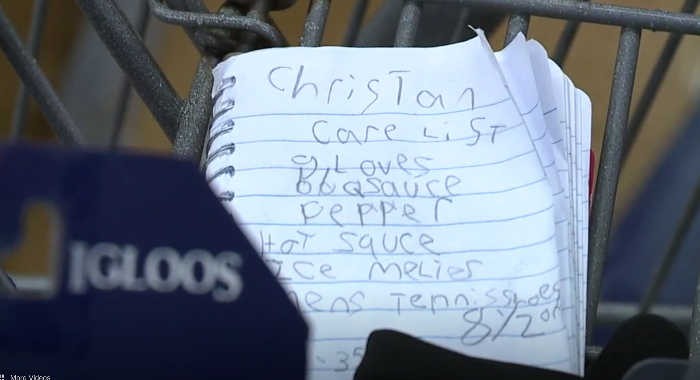 Christan
Care List
gloves
bbqsauce
pepper
Hot sauce
Ice melies
mens Tennisshoes
8 1/2 or
IGLOOS
More Videos